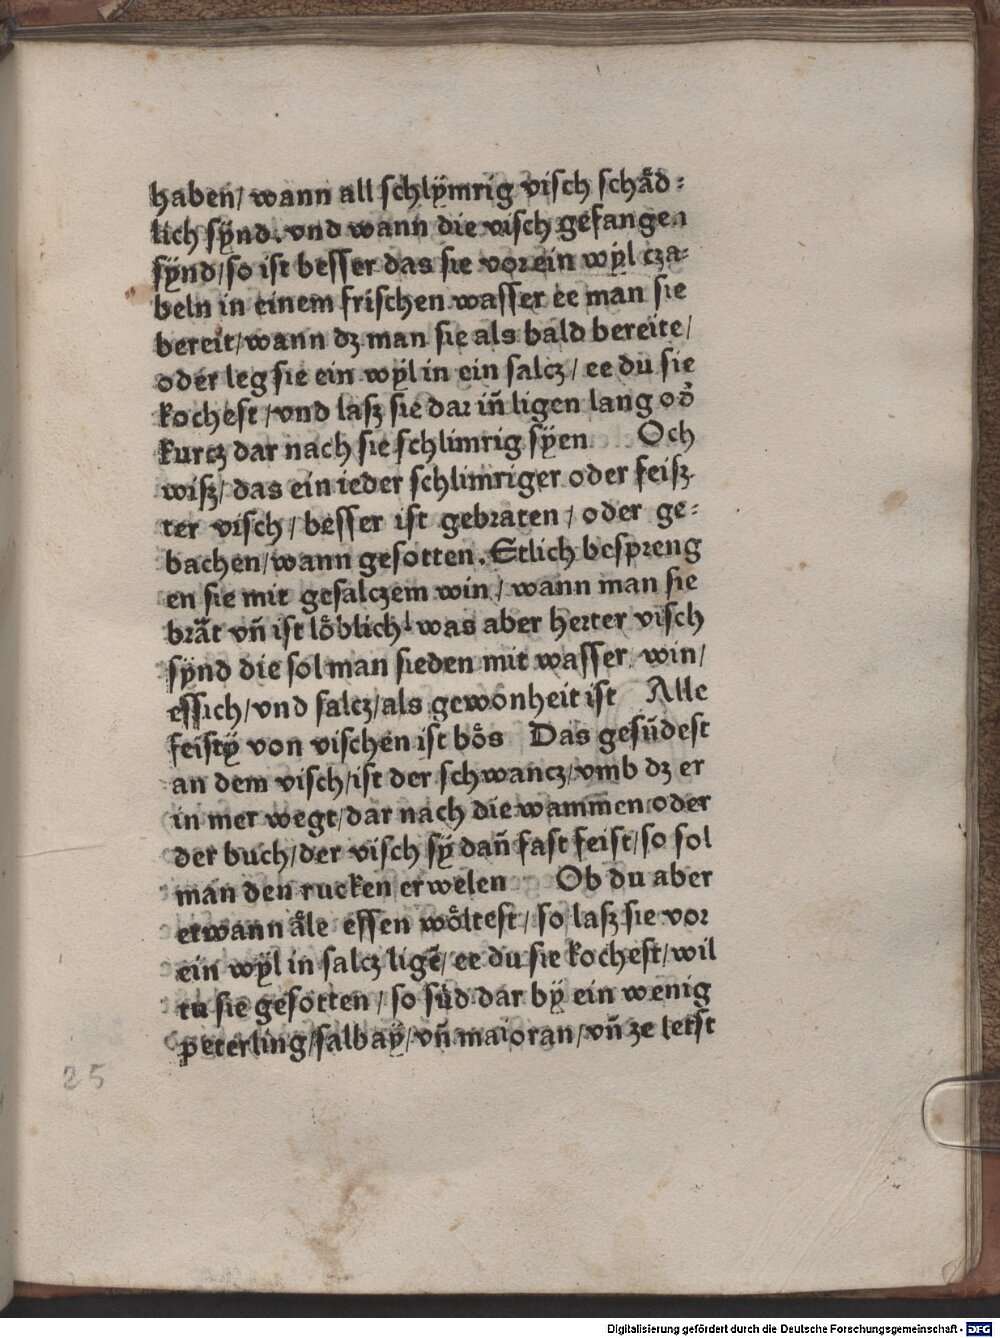 haben/ wann all schlÿmrig visch schåd⸗
lich sÿnd. vnd wann die visch gefangen
sÿnd/ so ist besser das sie vor ein wÿl cza⸗
beln in einem frischen wasser ee man sie
bereit/ wann dz man sie als bald bereite/
oder leg sie ein wÿl in ein salcz/ ee du sie
kochest/ vnd lasz sie dar in̄ ligen lang od̕
kurcz dar nach sie schlimrig sÿen Och
wisz/ das ein ieder schlimriger oder feisz⸗
ter visch/ besser ist gebraten/ oder ge⸗
bachen/ wann gesotten. Etlich bespreng
en sie mit gesalczem win/ wann man sie
bråt vn̄ ist lôblich was aber herter visch
sÿnd die sol man sieden mit wasser win/
essich/ vnd salcz/ als gewonheit ist Alle
feistÿ von vischen ist bôs Das gesu̇dest
an dem visch/ ist der schwancz/ vmb dz er
in mer wegt/ dar nach die wammen oder
der buch/ der visch sÿ dan̄ fast feist/ so sol
man den rucken erwelen Ob du aber
etwann åle essen wôltest/ so lasz sie vor
ein wÿl in salcz ligē/ ee du sie kochest/ wil
tu sie gesotten/ so su̇d dar bÿ ein wenig
peterling/ salbaÿ/ vn̄ maioran/ vn̄ ze letst
25
Digitalisierung gefördert durch die Deutsche Forschungsgemeinschaft - DFG